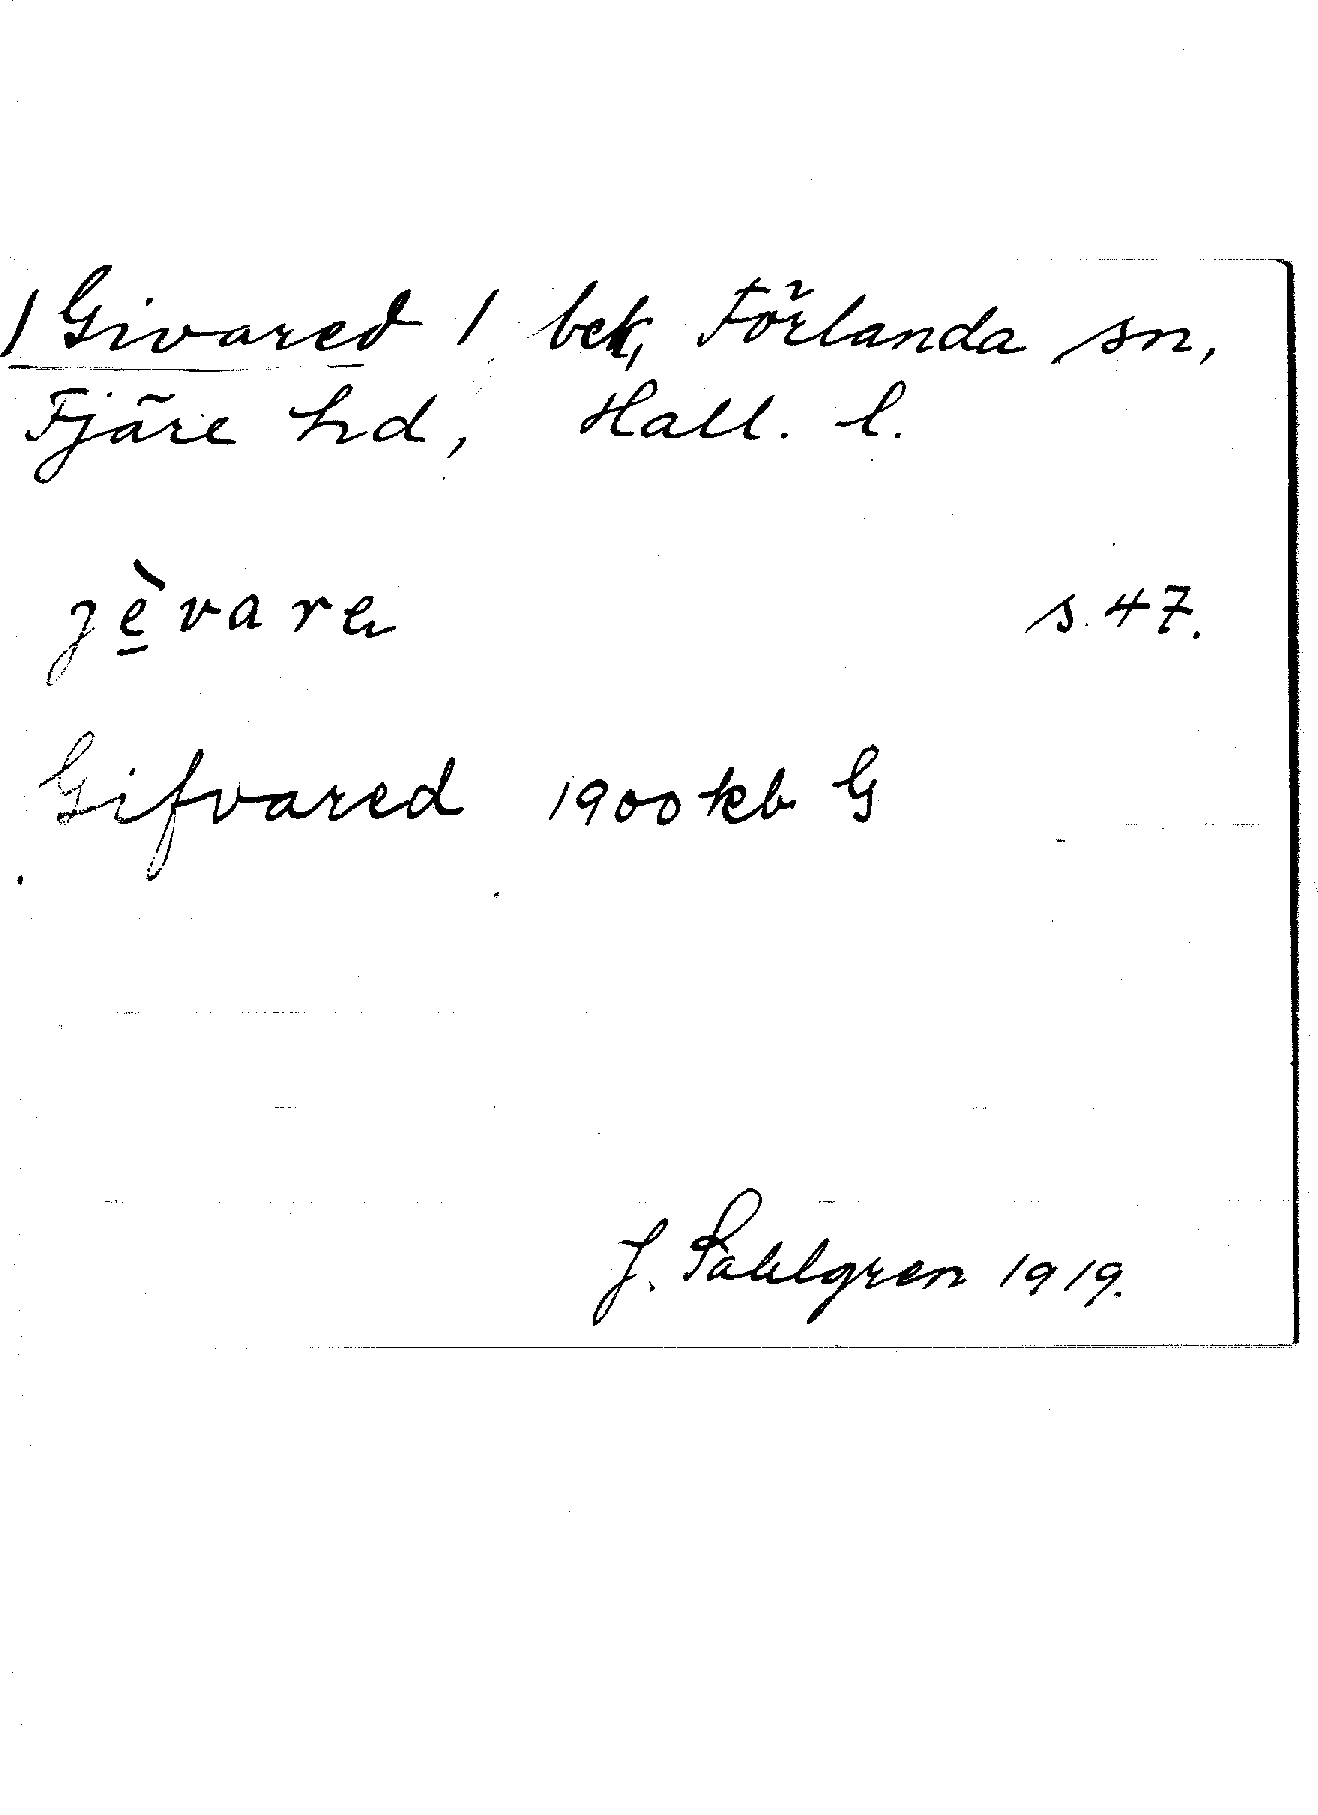 /Givared / bek, Förlanda sn,
Fjäre hd, Hall. l.
jèvare s. 47.
Gifvared 1900 kb G
J. Sahlgren 1919.